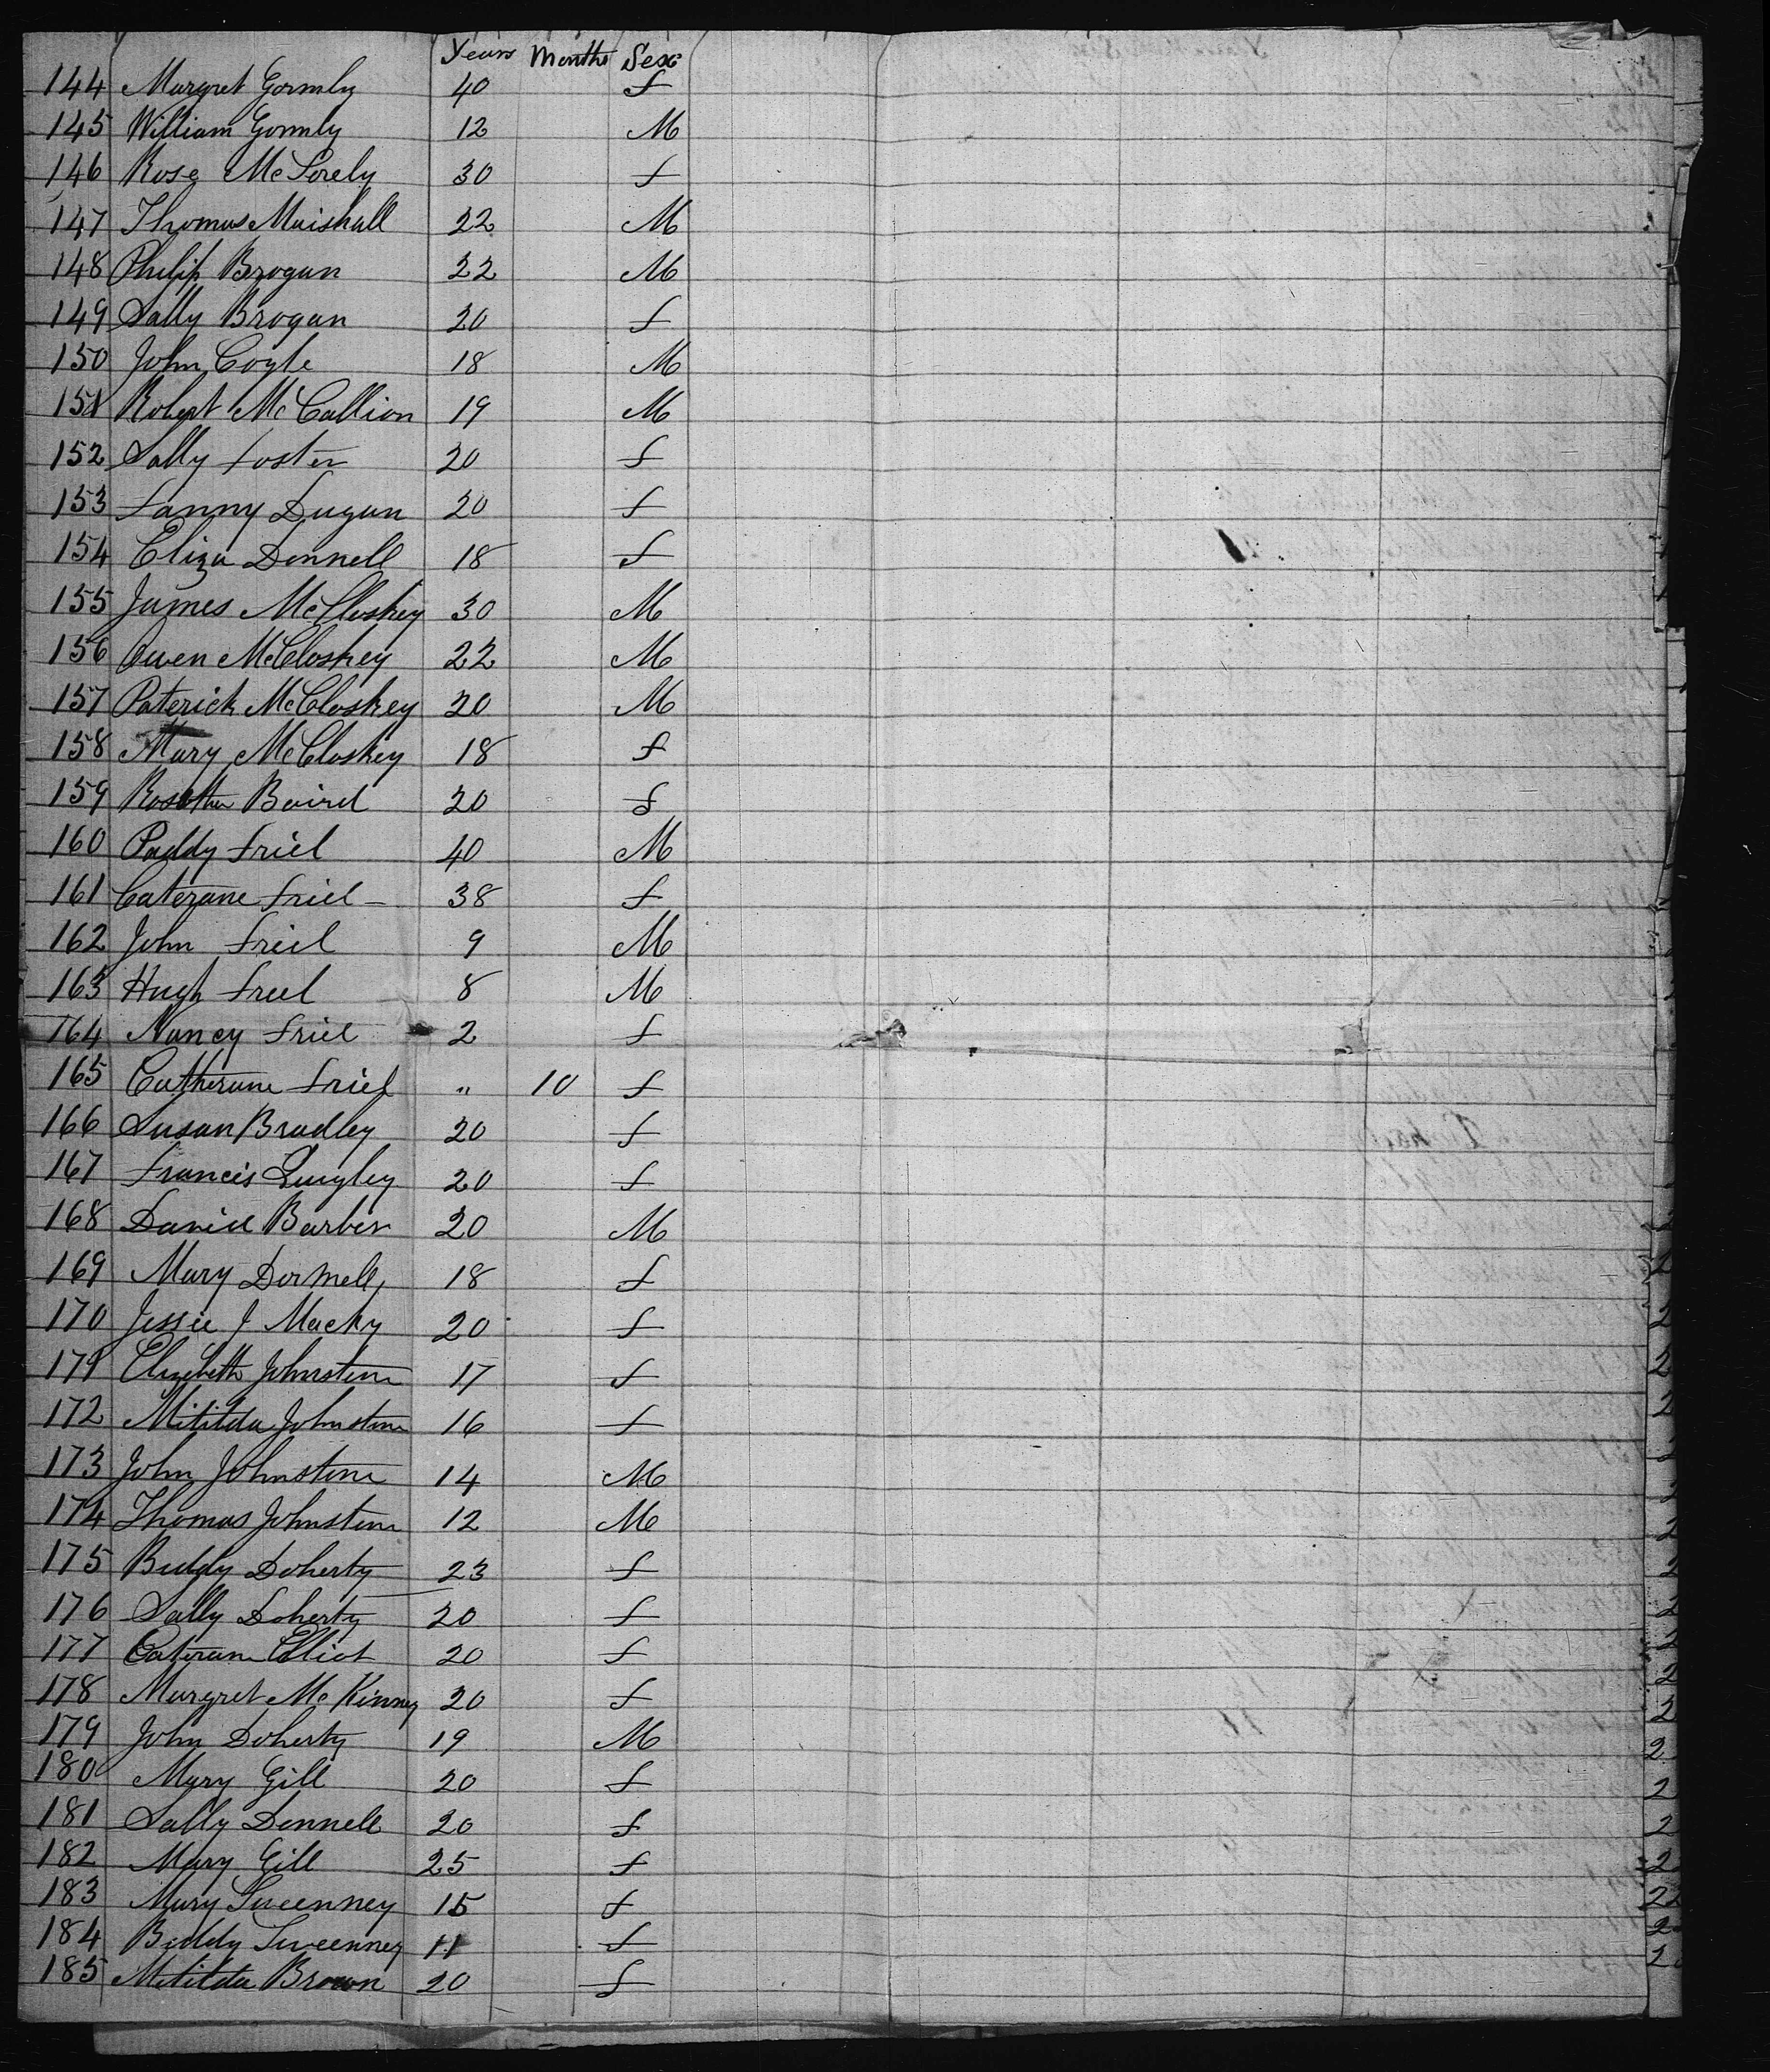 Years Months Sex
144 Margret Gormly 40 f
145 William Gormly 12 M
146 Rose McSorely 30 f
147 Thomas Maishall 22 M
148 Philip Brogan 22 M
149 Sally Brogan 20 f
150 John Coyle 18 M
151 Robert McCallion 19 M
152 Sally Foster 20 f
153 Fanny Dugan 20 f
154 Eliza Donnell 18 f
155 James McCloskey 30 M
156 Owen McCloskey 22 M
157 Paterick McCloskey 20 M
158 Mary McCloskey 18 f
159 Baird 20 f
160 Paddy Friel 40 M
161 Caterane Friel 38 f
162 John Friel 9 M
163 Hugh Friel 8 M
164 Nancy Friel 2 f
165 Catherane Friel " 10 f
166 Susan Bradley 20 f
167 Francis Quigley 20 f
168 Daniel Barber 20 M
169 Mary 18 f
170 Jessie J Macky 20 f
171 Elizebeth Johnston 17 f
172 Mitilda Johnston 16 f
173 John Johnston 14 M
174 Thomas Johnston 12 M
175 Biddy Doherty 23 f
176 Sally Doherty 20 f
177 Cateran Elliot 20 f
178 Margret McKinney 20 f
179 John Doherty 19 M
180 Mary Gill 20 f
181 Sally Donnell 20 f
182 Mary Gill 25 f
183 Mary Sweenney 15 f
184 Biddy Sweenney 11 f
185 Mitilda Brown 20 f